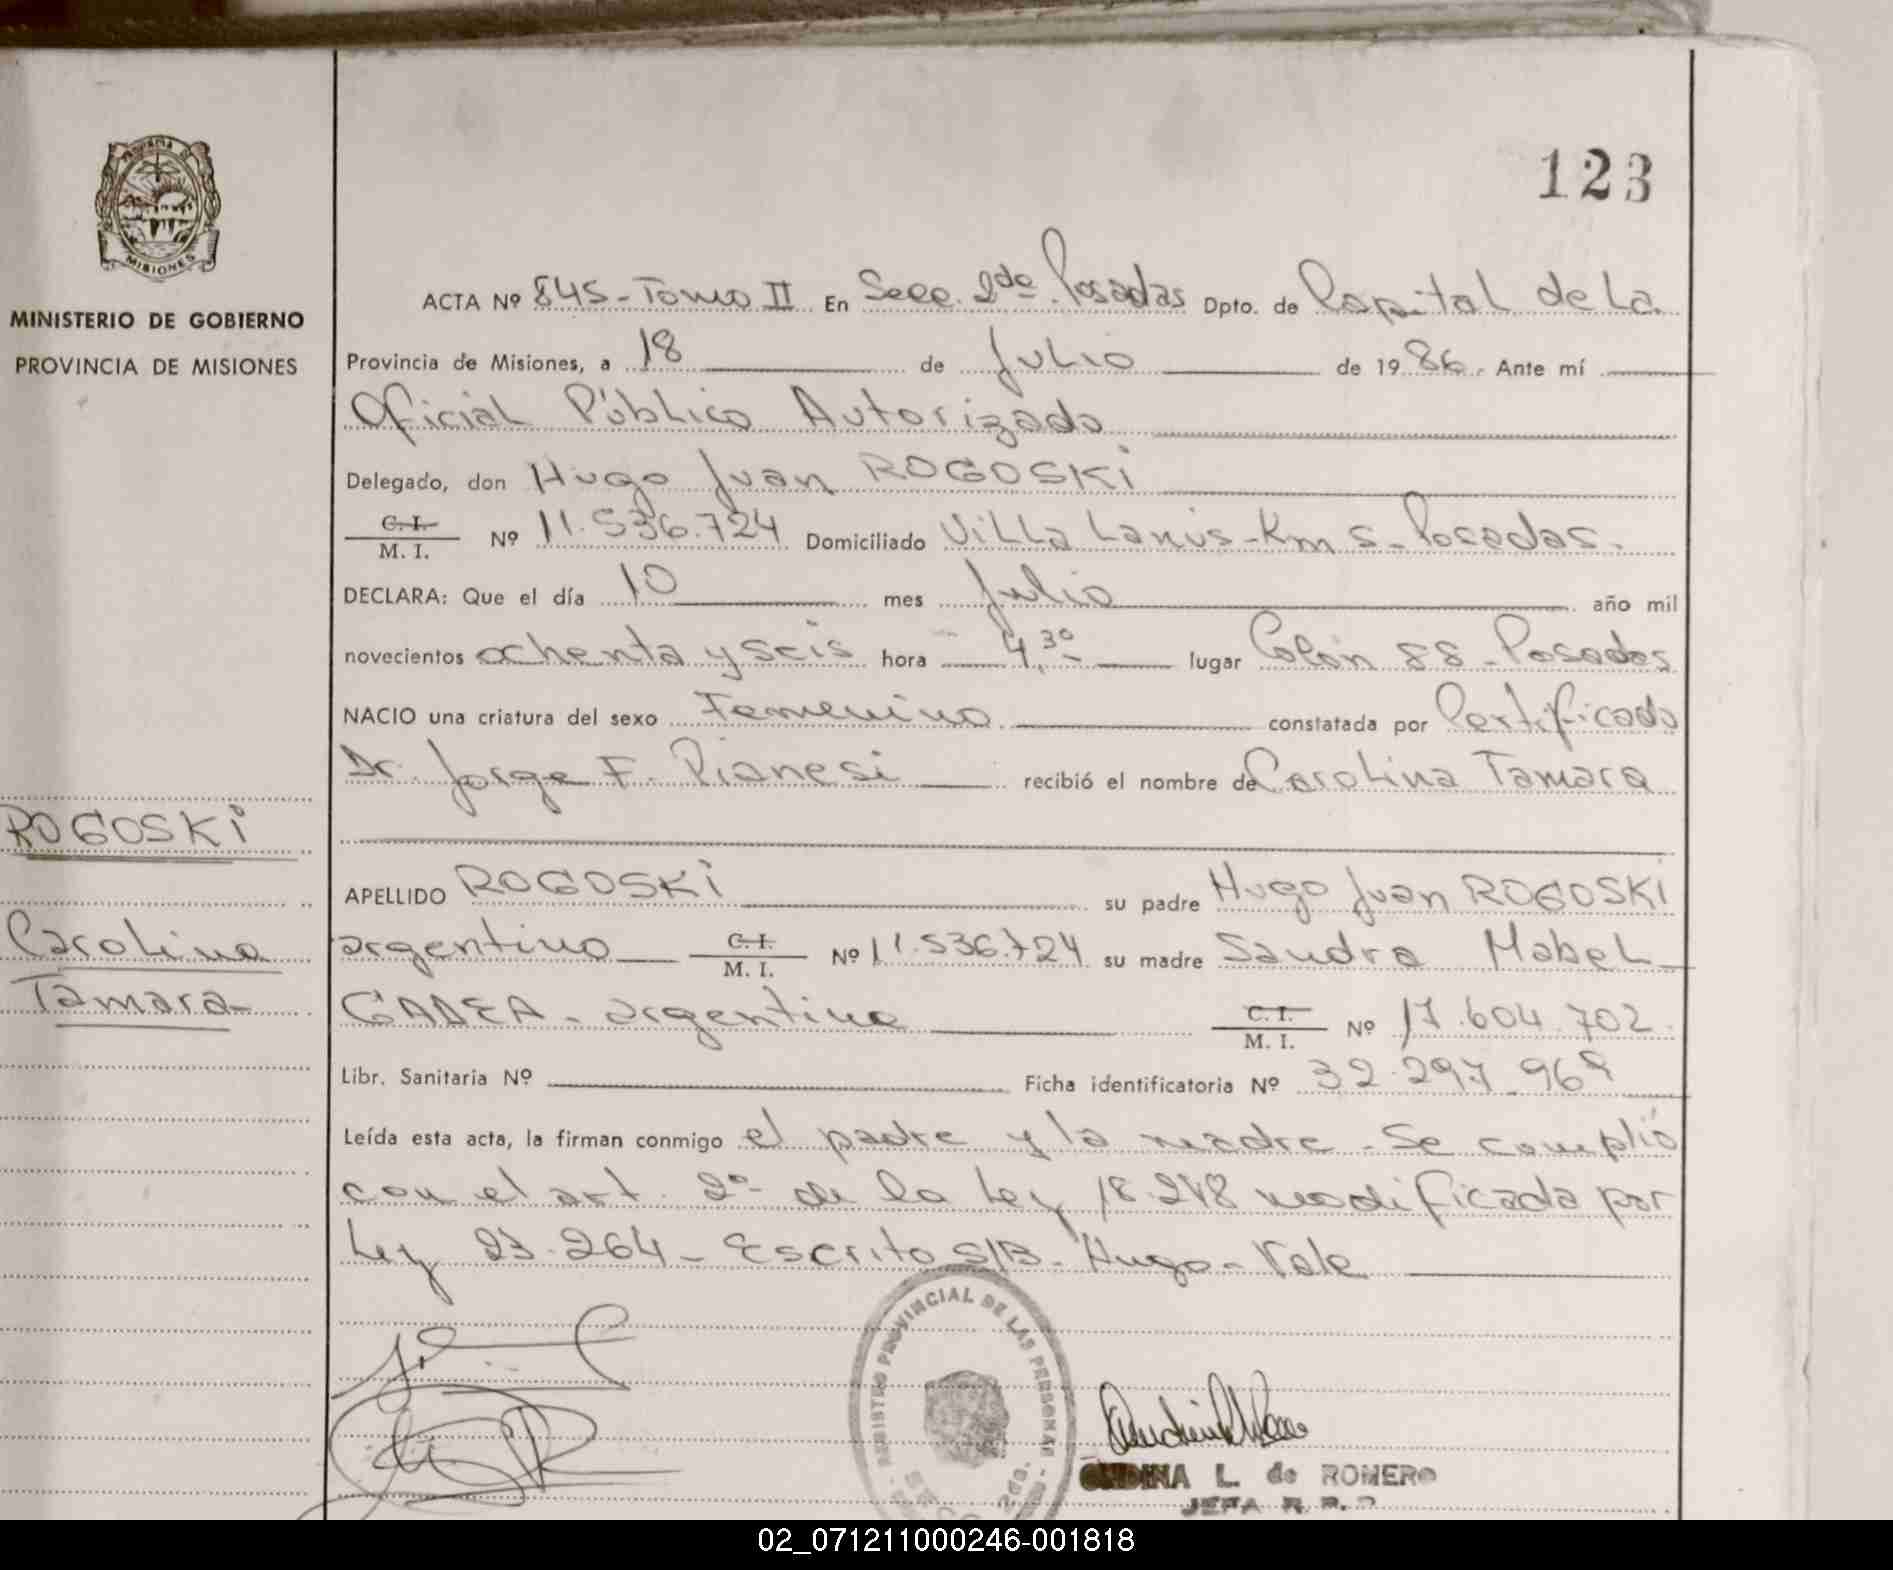 123
PROVINCIA DE
MISIONES
MINISTERIO DE GOBIERNO
PROVINCIA DE MISIONES
ACTA Nº 845 - Tomo II En Secc. 2da. Posadas Dpto. de Capital de La
Provincia de Misiones, a 18 de Julio de 1986. Ante mí
Oficial Público Autorizado
Delegado, don Hugo Juan ROGOSKI
C. I.
M. I. Nº 11.536.724 Domiciliado Villa Lanús - Km 5 - Posadas.
DECLARA: Que el día 10 mes Julio año mil
novecientos ochenta y seis hora 4,30 lugar Colón 88 - Posadas
NACIO una criatura del sexo Femenino constatada por Certificado
Dr. Jorge F. Pianesi recibió el nombre de Carolina Tamara
APELLIDO ROGOSKI su padre Hugo Juan ROGOSKI
argentino C. I.
M. I. Nº 11.536.724 su madre Sandra Mabel
GADEA - argentina C. I.
M. I. Nº 17.604.702.
Libr. Sanitaria Nº Ficha identificatoria Nº 32.297.968
Leída esta acta, la firman conmigo el padre y la madre - Se complió
con el art. 2º de la Ley 18.248 modificada por
Ley 23.264 - Escrito S/B - Hugo - Vale
ROGOSKI
Carolina
Tamara
REGISTRO PROVINCIAL DE LAS PERSONAS
ONDINA L. de ROMERO
JEFA R. P.
02_071211000246-001818